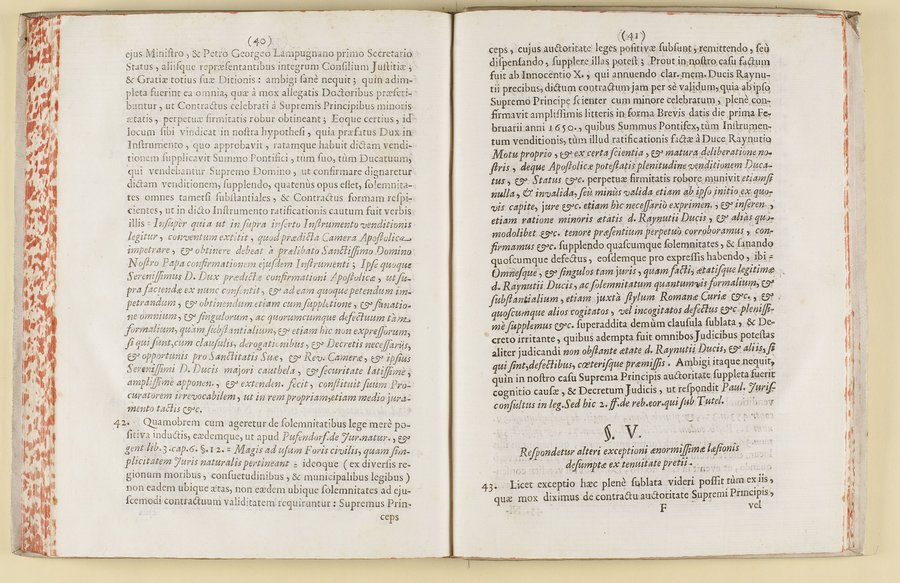 (40)
ejus Ministro, & Petro Georgeo Lampugnano primo Secretario
Status, aliisque repræsentantibus integrum Consilium Justitiæ,
& Gratiæ totius suæ Ditionis: ambigi sanè nequit; quin adim-
pleta fuerint ea omnia, quæ à mox allegatis Doctoribus præferi-
buntur, ut Contractus celebrati à Supremis Principibus minoris
ætatis, perpetuæ firmitatis robur obtineant; Eoque certius, id
locum sibi vindicat in nostra hypothesi, quia præfatus Dux in
Instrumento, quo approbavit, ratamque habuit dictam vendi-
tionem supplicavit Summo Pontifici, tùm suo, tùm Ducatuum,
qui vendebantur Supremo Domino, ut confirmare dignaretur
dictam venditionem, supplendo, quatenùs opus esset, solemnita-
tes omnes tametsi substantiales, & Contractus formam respi-
cientes, ut in dicto Instrumento ratificationis cautum fuit verbis
illis = Insuper quia ut in supra inserto Instrumento venditionis
legitur, conventum extitit, quod prædicta Camera Apostolica
impetrare, & obtinere debeat à prælibato Sanctissimo Domino
Nostro Papa confirmationem ejusdem Instrumenti; Ipse quoque
Serenissimus D. Dux prædictæ confirmationi Apostolicæ, ut su-
pra faciendæ ex nunc consentit, & ad eam quoque petendum im-
petrandum, & obtinendum etiam cum suppletione, & sanatio-
ne omnium, & singulorum, ac quorumcumque defectuum tàm
formalium, quàm substantialium, & etiam hic non expressorum,
si qui sunt, cum clausulis, derogationibus, & Decretis necessariis,
& opportunis pro Sanctitatis Suæ, & Rev. Cameræ, & ipsius
Serenissimi D. Ducis majori cauthela, & securitate latissimè,
amplissimè apponen., & extenden. fecit, constituit suum Pro-
curatorem irrevocabilem, ut in rem propriam, etiam medio jura-
mento tactis &c.
42. Quamobrem cum ageretur de solemnitatibus lege merè po-
sitiva inductis, eædemque, ut apud Pufendorf. de Jur. natur., &
gent. lib. 3. cap. 6. §. 12. = Magis ad usum Foris civilis, quam sim-
plicitatem Juris naturalis pertineant = ideoque (ex diversis re-
gionum moribus, consuetudinibus, & municipalibus legibus)
non eadem ubique ætas, non eædem ubique solemnitates ad eju-
scemodi contractuum validitatem requiruntur: Supremus Prin-
ceps
(41)
ceps, cujus auctoritate leges positivæ subsunt, remittendo, seù
dispensando, supplere illas potest; Prout in nostro casu factum
fuit ab Innocentio X., qui annuendo clar. mem. Ducis Raynu-
tii precibus, dictum contractum jam per sè validum, quia ab ipso
Supremo Principe scienter cum minore celebratum, plenè con-
firmavit amplissimis litteris in forma Brevis datis die prima Fe-
bruarii anni 1650., quibus Summus Pontifex, tùm Instrumen-
tum venditionis, tùm illud ratificationis factæ à Duce Raynutio
Motu proprio, & ex certa scientia, & matura deliberatione no-
stris, deque Apostolicæ potestatis plenitudine venditionem Duca-
tus, & Status &c. perpetuæ firmitatis robore munivit etiamsi
nulla, & invalida, seù minùs valida etiam ab ipso initio ex quo-
vis capite, jure &c. etiam hìc necessariò exprimen., & inseren.,
etiam ratione minoris ætatis d. Raynutii Ducis, & aliàs quo-
modolibet &c. tenore præsentium perpetuò corroboramus, con-
firmamus &c. supplendo quascumque solemnitates, & sanando
quoscumque defectus, eosdemque pro expressis habendo, ibi =
Omnesque, & singulos tam juris, quam facti, ætatisque legitimæ
d. Raynutii Ducis, ac solemnitatum quantumvis formalium, &
substantialium, etiam juxtà stylum Romanæ Curiæ &c., &
quoscumque alios cogitatos, vel incogitatos defectus &c. plenissi-
mè supplemus &c. superaddita demùm clausula sublata, & De-
creto irritante, quibus adempta fuit omnibus Judicibus potestas
aliter judicandi non obstante ætate d. Raynutii Ducis, & aliis, si
qui sint, defectibus, cœterisque præmissis. Ambigi itaque nequit,
quin in nostro casu Suprema Principis auctoritate suppleta fuerit
cognitio causæ, & Decretum Judicis, ut respondit Paul. Juris-
consultus in leg. Sed hic 2. ff. de reb. eor. qui sub Tutel.
§. V.
Respondetur alteri exceptioni ænormissimæ læsionis
desumptæ ex tenuitate pretii.
43. Licet exceptio hæc plenè sublata videri possit tùm ex iis,
quæ mox diximus de contractu auctoritate Supremi Principis,
F vel